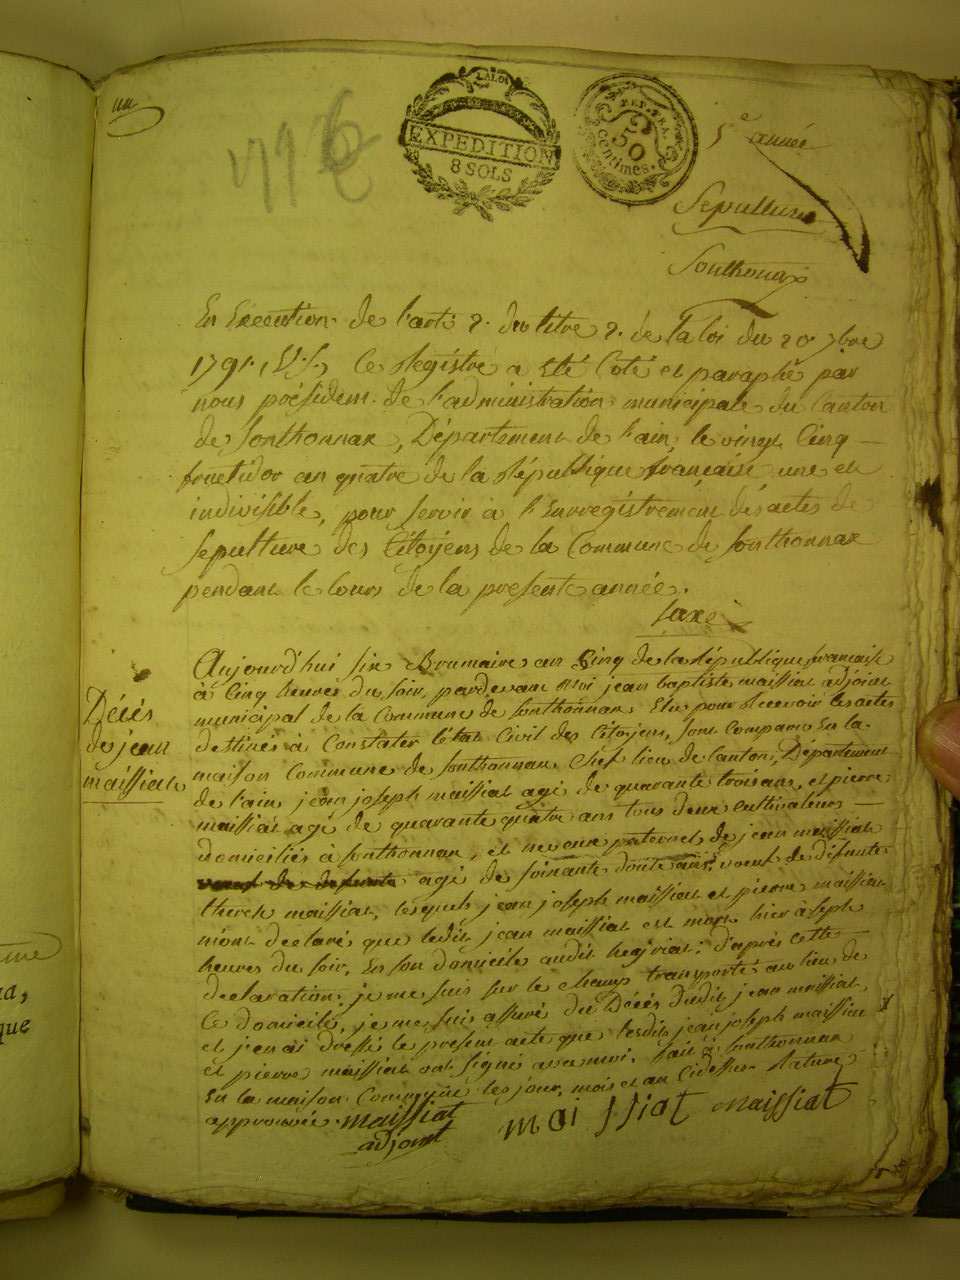 un
LA LOI
EXPEDITION
8 SOLS
REP. FRA.
50
centimes.
5e année
Sepulture
Sonthonax
En Execution de l'arte 2. du titre 2. de la loi du 20. 7bre
1791. (V.S.) Ce Régistre a été Coté et paraphé par
nous président de l'administration municipale du Canton
de Sonthonnax, Département de l'ain, le vingt Cinq
fructidor an quatre de la République française une et
indivisible, pour servir à l'Enregistrement des actes de
sepulture des Citoyens de la Commune de Sonthonnax
pendant le Cours de la presente année.
Décès
de jean
maissiat
Aujourd'hui six Brumaire an Cinq de la République française
à Cinq heures du soir, pardevant Moi jean baptiste maissiat adjoint
municipal de la Commune de Sonthonnax Elu pour Recevoir les actes
destinés à Constater l'état Civil des Citoyens, sont Comparu En la
maison Commune de Sonthonnax Chef lieu de Canton, Département
de l'ain jean joseph maissiat agé de quarante trois ans, et pierre
maissiat agé de quarante quatre ans tous deux cultivateurs
domiciliés à Sonthonnax, et neveux paternel de jean maissiat
agé de soixante douze ans, veuf de défunte
maissiat, lesquels jean joseph maissiat et pierre maissiat
mont declaré que ledit jean maissiat est mort hier à sept
heures du soir, En son domicile audit d'après cette
declaration, je me suis sur le champ transporté au lieu de
Ce domicile, je me suis assuré du Décès dudit jean maissiat,
et j'en ai dressé le present acte que lesdits jean joseph maissiat
et pierre maissiat ont signé avec moi. fait à Sonthonnax
En la maison Commune les jour, mois et an Cidessus
approuvée. maissiat
adjoint
mai ssiat
maissiat